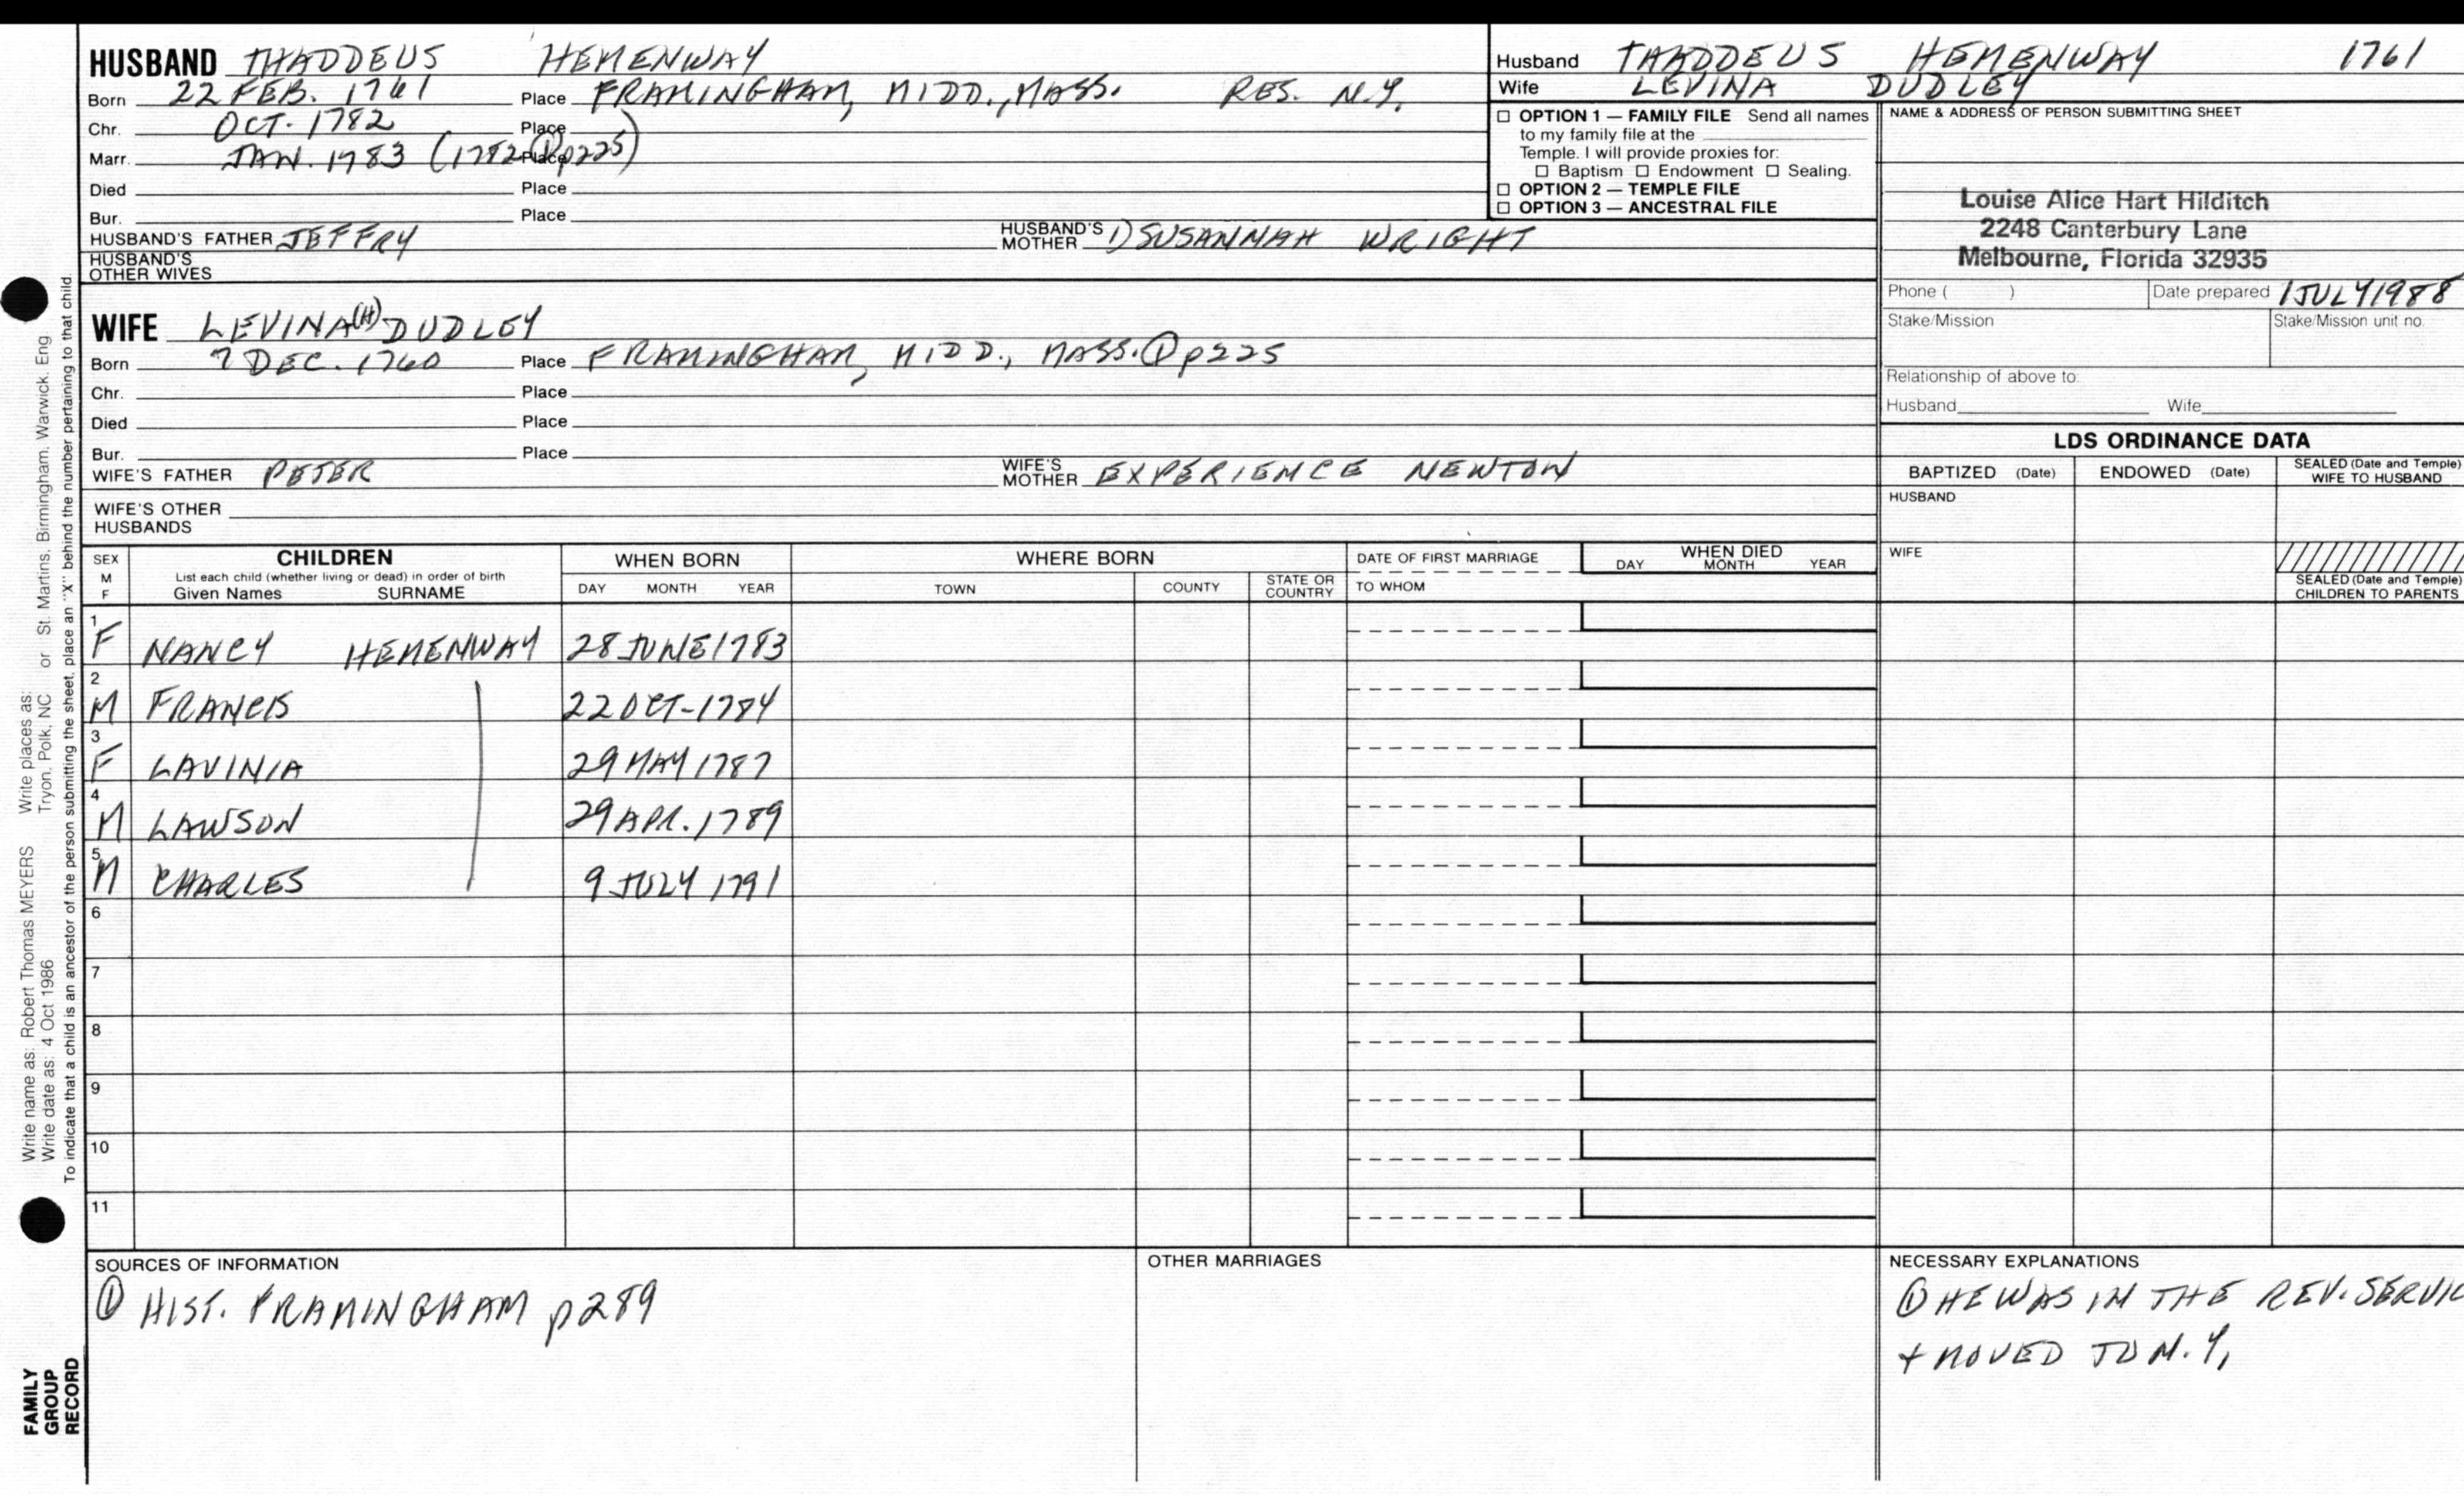 HUSBAND THADDEUS HEMENWAY
Born 22 FEB. 1761 Place FRAMINGHAM, MIDD., MASS. RES. N.Y.
Chr. OCT. 1782 Place
Marr. JAN. 1783 (1782 ① p225) Place
Died Place
Bur. Place
HUSBAND'S FATHER JEFFRY HUSBAND'S MOTHER 1) SUSANNAH WRIGHT
HUSBAND'S OTHER WIVES
WIFE LEVINA(H) DUDLEY
Born 7 DEC. 1760 Place FRAMINGHAM, MIDD., MASS. ① p225
Chr. Place
Died Place
Bur. Place
WIFE'S FATHER PETER WIFE'S MOTHER EXPERIENCE NEWTON
WIFE'S OTHER HUSBANDS
Husband THADDEUS HEMENWAY 1761
Wife LEVINA DUDLEY
☐ OPTION 1 — FAMILY FILE Send all names
to my family file at the
Temple. I will provide proxies for:
☐ Baptism ☐ Endowment ☐ Sealing.
☐ OPTION 2 — TEMPLE FILE
☐ OPTION 3 — ANCESTRAL FILE
NAME & ADDRESS OF PERSON SUBMITTING SHEET
Louise Alice Hart Hilditch
2248 Canterbury Lane
Melbourne, Florida 32935
Phone ( ) Date prepared 1 JULY 1988
Stake/Mission Stake/Mission unit no.
Relationship of above to:
Husband Wife
LDS ORDINANCE DATA
BAPTIZED (Date) ENDOWED (Date) SEALED (Date and Temple) WIFE TO HUSBAND
HUSBAND
WIFE
SEALED (Date and Temple) CHILDREN TO PARENTS
SEX M F CHILDREN List each child (whether living or dead) in order of birth Given Names SURNAME WHEN BORN DAY MONTH YEAR WHERE BORN TOWN COUNTY STATE OR COUNTRY DATE OF FIRST MARRIAGE TO WHOM WHEN DIED DAY MONTH YEAR
1 F NANCY HEMENWAY 28 JUNE 1783
2 M FRANCIS 22 OCT-1784
3 F LAVINIA 29 MAY 1787
4 M LAWSON 29 APR. 1789
5 M CHARLES 9 JULY 1791
6
7
8
9
10
11
SOURCES OF INFORMATION
① HIST. FRAMINGHAM p289
OTHER MARRIAGES
NECESSARY EXPLANATIONS
① HE WAS IN THE REV. SERVIC
+ MOVED TO N.Y,
Write name as: Robert Thomas MEYERS Write places as:
Write date as: 4 Oct 1986 Tryon, Polk, NC or St. Martins, Birmingham, Warwick, Eng
To indicate that a child is an ancestor of the person submitting the sheet, place an "X" behind the number pertaining to that child.
FAMILY
GROUP
RECORD